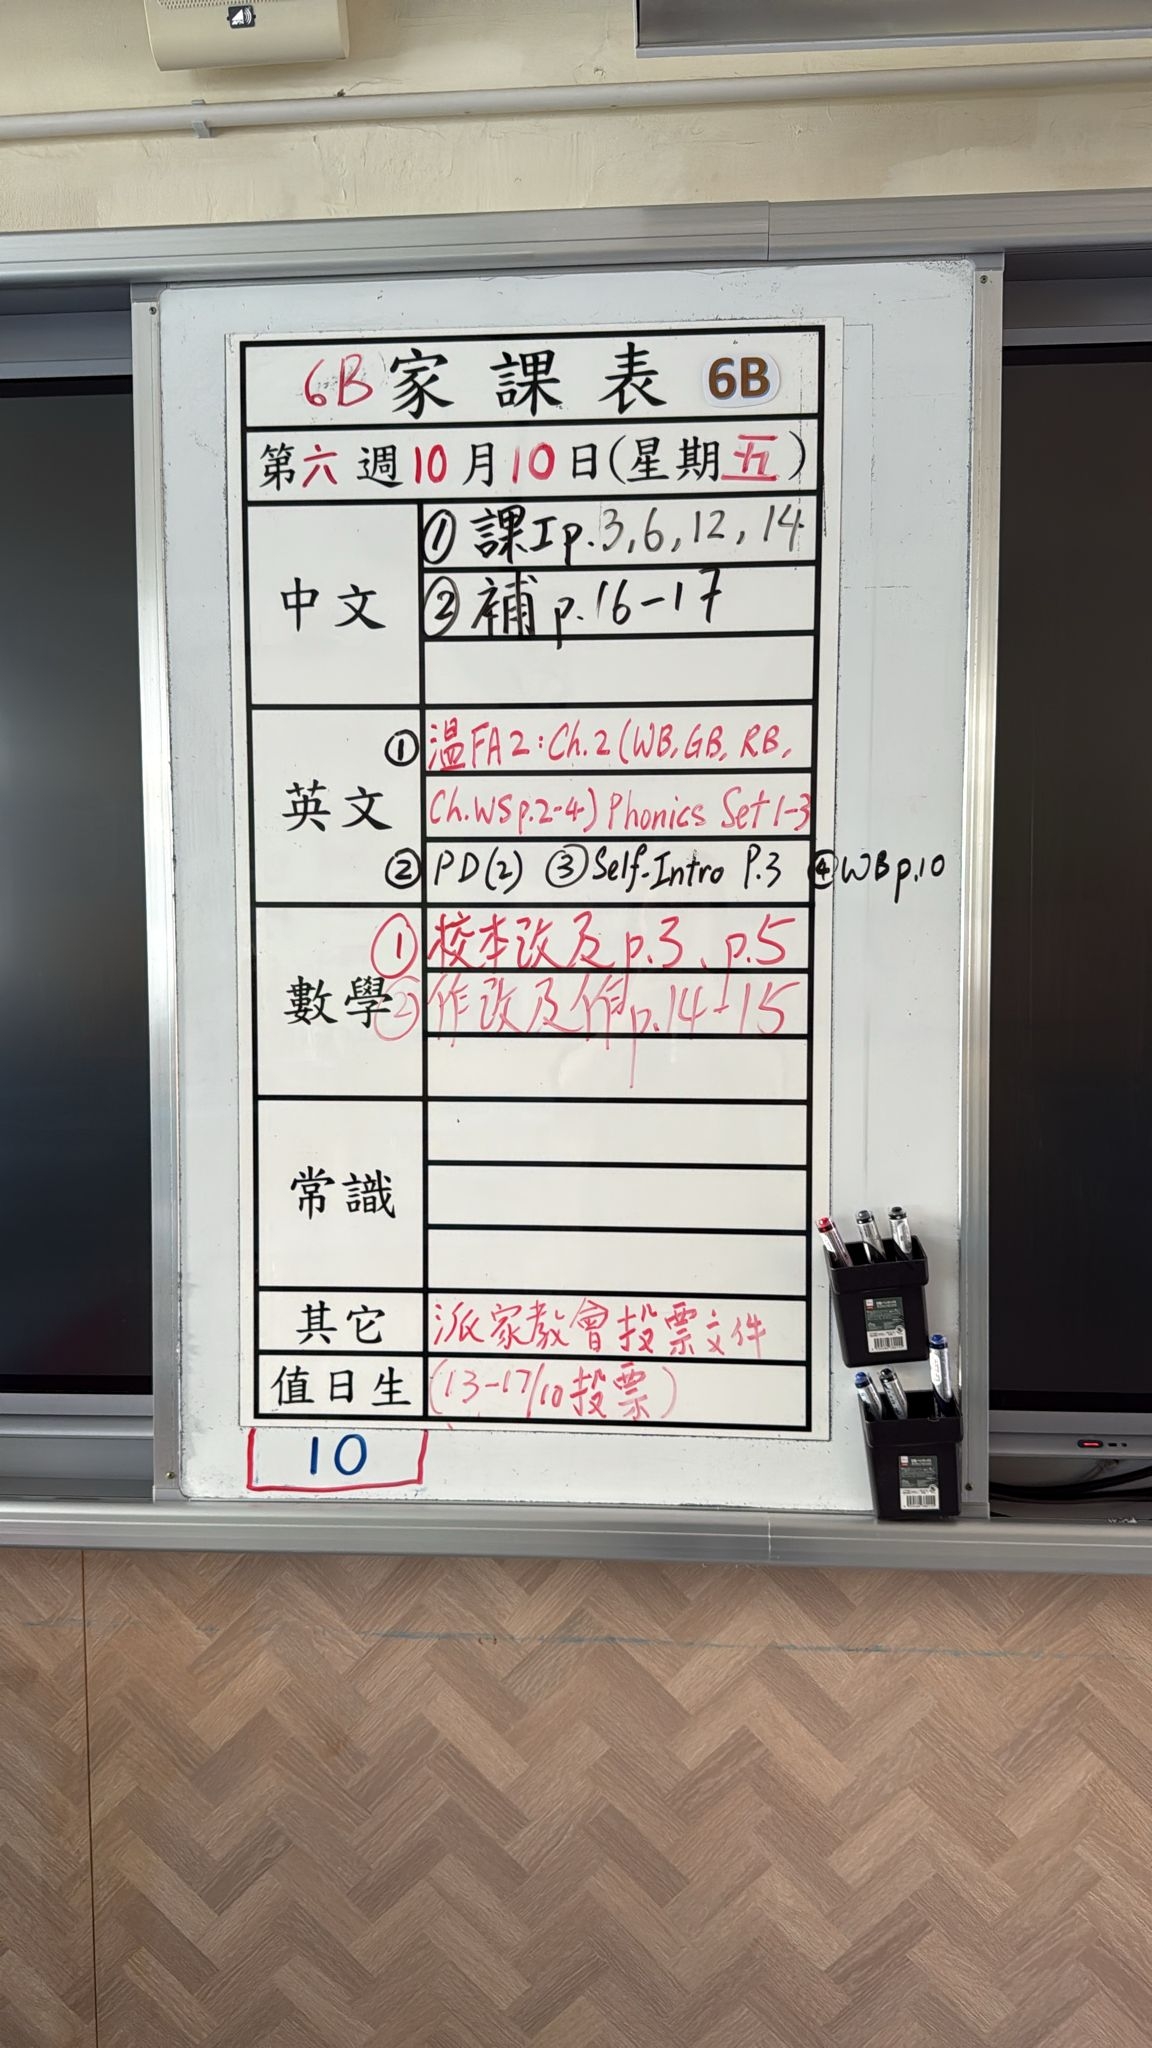 6B家課表 6B
第六週10月10日(星期五)
中文
① 課I p.3,6,12,14
② 補 p.16-17
英文
① 溫FA2:Ch.2(WB,GB,RB,
Ch.WSp.2-4) Phonics Set 1-3
② PD(2) ③ Self-Intro P.3 ④ WB p.10
數學
① 校本改及p.3、p.5
② 作改及作p.14-15
常識
其它 派家教會投票文件
值日生 (13-17/10投票)
10